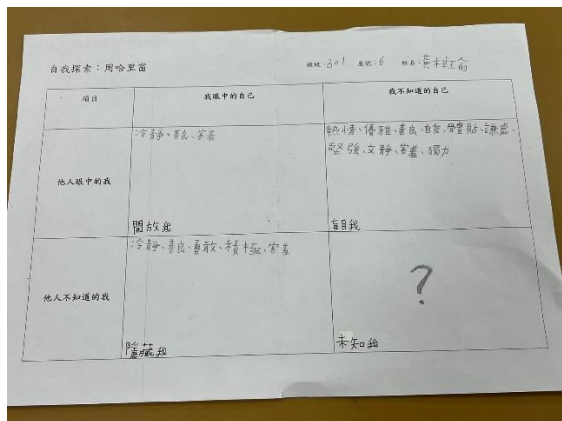 自我探索：周哈里窗
班級：301 座號：6 姓名：黃
項目
我眼中的自己
我不知道的自己
他人眼中的我
冷靜、善良、害羞
開放我
熱情、優雅、善良、自信、體貼、謙虛、
堅強、文靜、害羞、獨力
盲目我
他人不知道的我
冷靜、善良、勇敢、積極、害羞
隱藏我
?
未知我